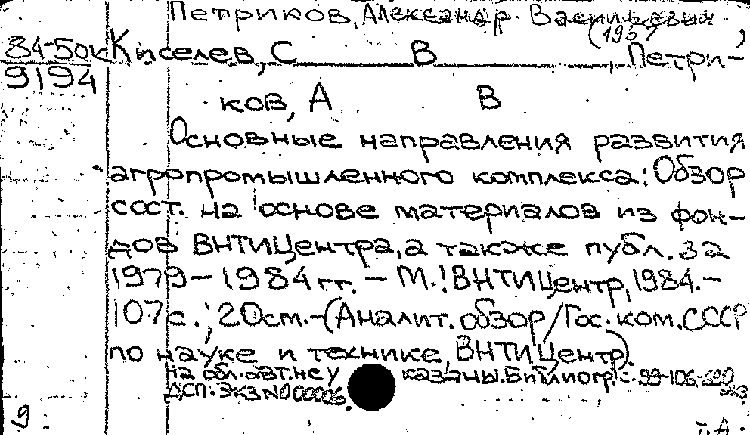 Петриков, Александр Васильевич
(1957
84-50к Киселев, С В Петри-
9194
ков, А В
Основные направления развития
агропромышленного комплекса: Обзор
сост. на основе материалов из фон-
дов ВНТИЦентра, а также публ. за
1979-1984 гг. - М.: ВНТИЦентр, 1984.-
107 с.; 20см.-(Аналит. обзор/Гос. ком. СССР
по науке и технике, ВНТИЦентр).
На обл. авт. не указаны. Библиогр.: с. 99-106
ДСП. Экз N 000006.
9
т. д.